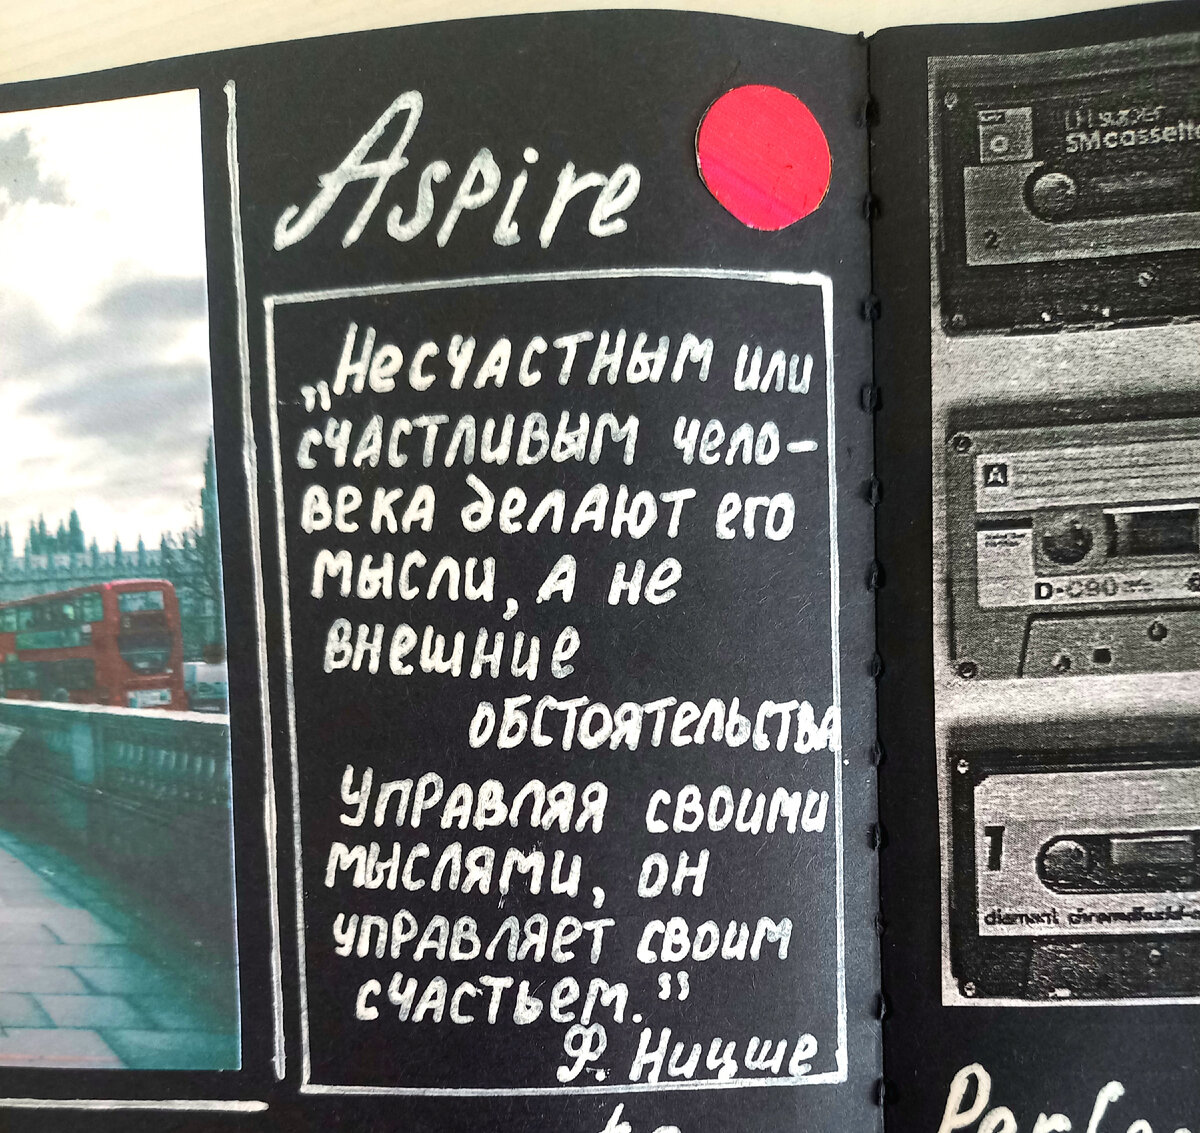 Aspire
„Несчастным или
счастливым чело-
века делают его
мысли, а не
внешние
обстоятельства
Управляя своими
мыслями, он
управляет своим
счастьем.”
Ф. Ницше
SM cassette
2
A
D-C90
1
diamant